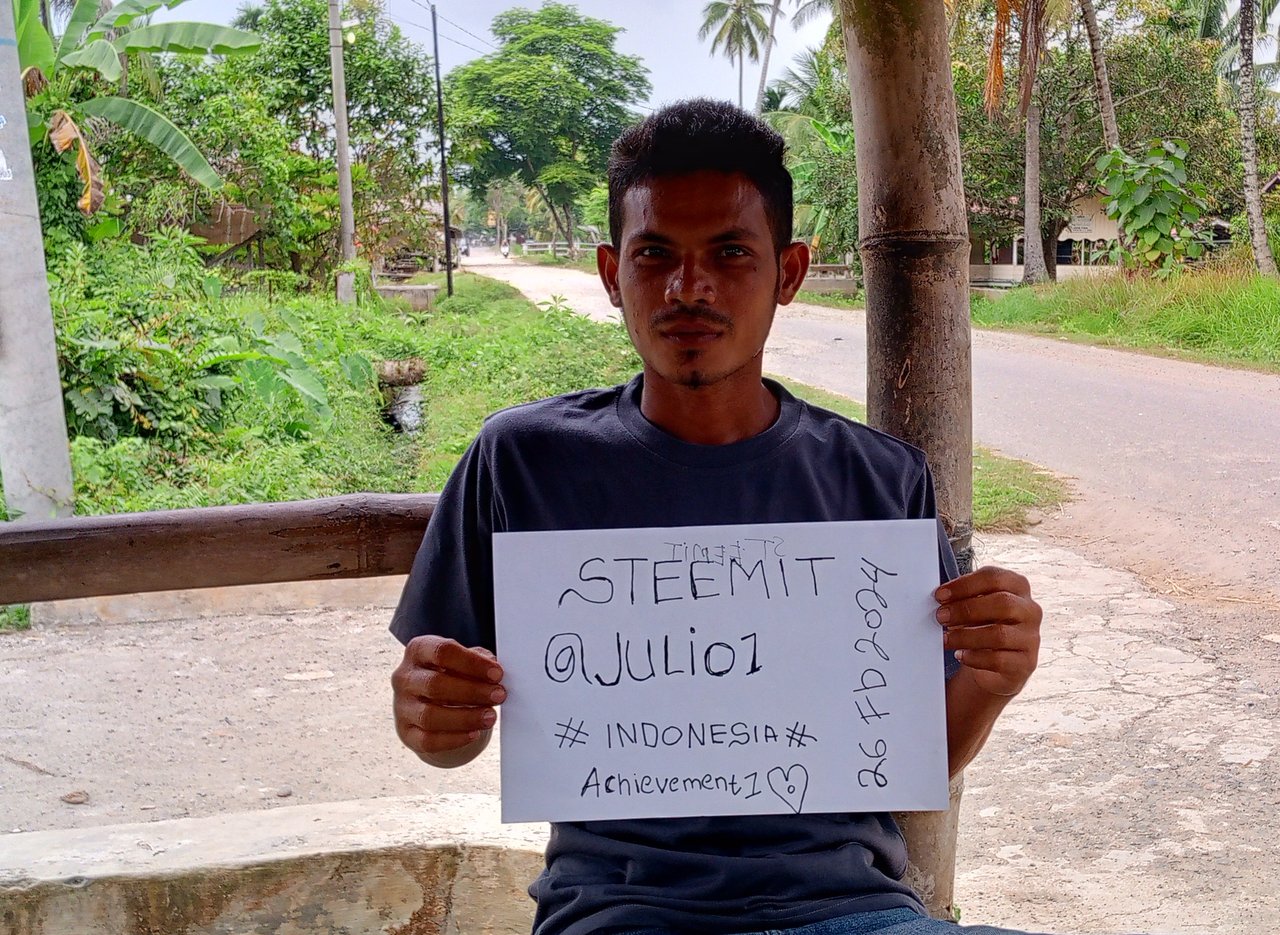 STEEMIT
STEEMIT
@JULiO1
# INDONESIA #
Achievement1
26 Fb 2024